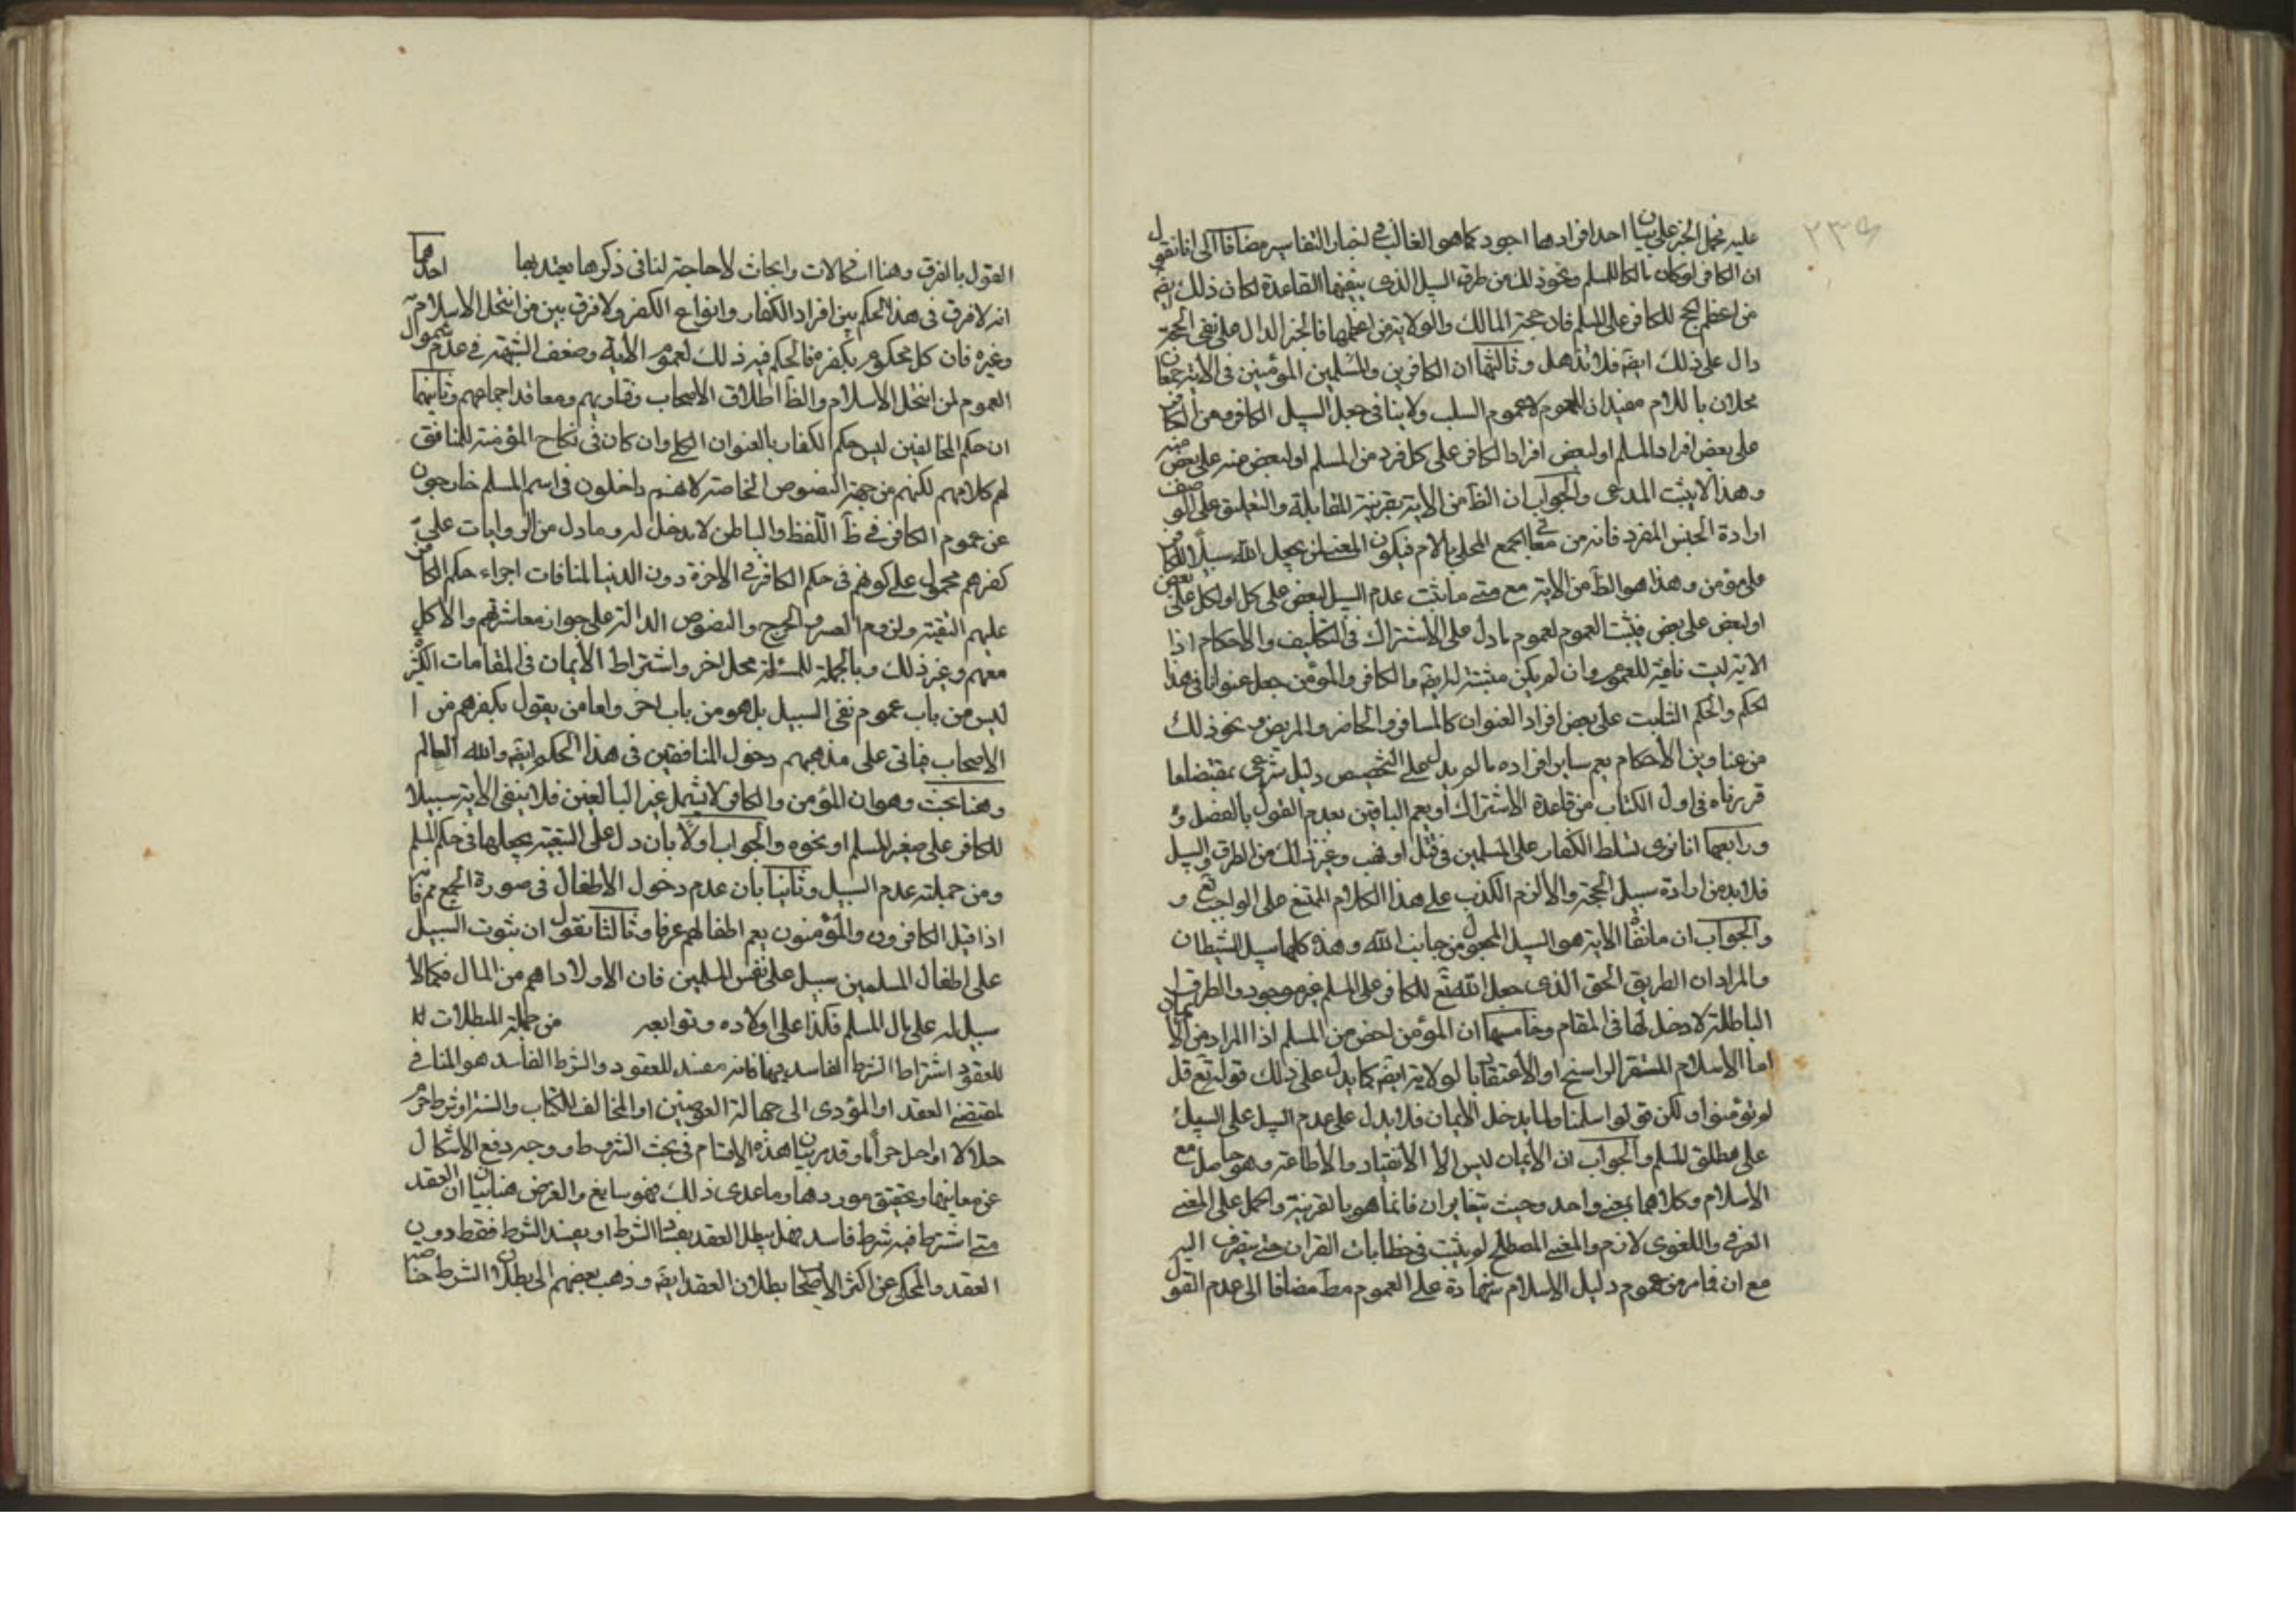 ٢٣٥
عليه فحمل الخبر على بيان احد افرادها اجود كما هو الغالب في اخبار التفاسير مضافا الى انا نقول
ان الكافر لو كان مالكا للمسلم ونحو ذلك من طرق السبيل الذي ينفيها القاعدة لكان ذلك ايضَ
من اعظم الحجج للكافر على المسلم فان حجة المالك والولاية من اعظمها فالخبر الدال على نفي الحجة
دال على ذلك ايضَ فلا تذهل وثالثها ان الكافرين والمسلمين المؤمنين في الاية جمعان
محلان باللام مفيدان للعموم لا عموم السلب ولا ينافي جعل السبيل الكافر ومن الكافر
على بعض افراد المسلم او لبعض افراد الكافر على كل فرد من المسلم او لبعض منه على بعض منه
وهذا لا يثبت المدعى والجواب ان الظَ من الاية بقرينة المقابلة والتعليق على الوصف
ارادة الجنس المفرد فانه من معاني الجمع المحلى باللام فيكون المعنى لن يجعل الله سبيلا للكافر
على مؤمن وهذا هو الظَ من الاية مع متى ما ثبت عدم السبيل لبعض على كل او لكل على بعض
او لبعض على بعض فيثبت العموم لعموم ما دل على الاشتراك في التكاليف والاحكام اذا
الاية ليست نافية للعموم وان لم يكن مثبتة له ايضَ والكافر والمؤمن جعل عنوانا في هذا
الحكم والحكم الثابت على بعض افراد العنوان كالمسافر والحاضر والمريض ونحو ذلك
من عناوين الاحكام يعم ساير افراده ما لم يدل على التخصيص دليل شرعي بمقتضى ما
قررناه في اول الكتاب من قاعدة الاشتراك او يعم الباقين بعدم القول بالفصل و
ورابعها انا نرى تسلط الكفار على المسلمين في قتل او نهب وغير ذلك من الطرق والسبيل
فلا بد من ارادة سبيل الحجة والا لزم الكذب على هذا الكلام الممتنع على الواجب تع و
والجواب ان ما نفاه الاية هو السبيل المجعول من جانب الله وهذه كلها سبيل الشيطان
والمراد ان الطريق الحق الذي جعل الله تع للكافر على المسلم غير موجود والطرق
الباطلة لا دخل لها في المقام وخامسها ان المؤمن اخص من المسلم اذ المراد من الايمان
اما الاسلام المستقر الراسخ او الاعتقاد بالولاية ايضَ كما يدل على ذلك قوله تع قل
لم تؤمنوا ولكن قولوا اسلمنا ولما يدخل الايمان فلا يدل على عدم السبيل على السبيل
على مطلق المسلم والجواب ان الايمان ليس الا الانقياد والاطاعة وهو حاصل مع
الاسلام وكلاهما بمعنى واحد وحيث يتغايران فانما هو بالقرينة والحمل على المعنى
العرفي واللغوي لازم والمعنى المصطلح لم يثبت في خطابات القران حتى يصرف اليه
مع ان فيما مر من عموم دليل الاسلام شهادة على العموم مطَ مضافا الى عدم القول
القول بالفرق وهنا اشكالات وابحاث لا حاجة لنا في ذكرها يعتد بها احدها
انه لا فرق في هذا الحكم بين افراد الكفار وانواع الكفر ولا فرق بين من انتحل الاسلام
وغيره فان كل محكوم بكفره فالحكم فيه ذلك لعموم الاية وضعف الشبهة في عدم شمول
العموم لمن انتحل الاسلام والظَ اطلاق الاصحاب وفتاويهم ومعاقد اجماعهم وثانيها
ان حكم المخالفين ليس حكم الكفار بالعنوان الكلي وان كان في نكاح المؤمنة للمنافق
لهم كلام لهم لكنهم من جهة النصوص الخاصة لانهم داخلون في اسم المسلم خارجون
عن عموم الكافر في ظَ اللفظ والباطن لا يدخل له وما دل من الروايات على
كفرهم محمول على كونهم في حكم الكافر في الاخرة دون الدنيا لمنافات اجراء حكم الكافر
عليهم التقية ولزوم العسر والحرج والنصوص الدالة على جواز معاشرتهم والاكل
معهم وغير ذلك وبالجملة للمسئلة محل اخر واشتراط الايمان في المقامات الكثيرة
ليس من باب عموم نفي السبيل بل هو من باب اخر واما من يقول بكفرهم من ا
الاصحاب فياتي على مذهبهم دخول المنافقين في هذا الحكم ايضَ والله العالم
وهنا بحث وهو ان المؤمن والكافر لا يشمل غير البالغين فلا ينفي الاية سبيلا
للكافر على صغير المسلم او نحوه والجواب اولًا بان دل على التبعية يجعلها في حكم المسلم
ومن جملته عدم السبيل وثانيا بان عدم دخول الاطفال في صورة الجمع مم فانه
اذا قيل الكافرون والمؤمنون يعم اطفالهم عرفا وثالثا نقول ان ثبوت السبيل
على اطفال المسلمين سبيل على نفس المسلمين فان الاولاد اهم من المال فكما لا
سبيل له على مال المسلم فكذا على اولاده وتوابعه من جملة المبطلات
للعقود اشتراط الشرط الفاسد فيها فانه مفسد للعقود والشرط الفاسد هو المنافي
لمقتضى العقد او المؤدي الى جهالة العوضين او المخالف للكتاب والسنة او شرط حرم
حلالا او احل حراما وقد مر بيان هذه الاقسام في بحث الشروط ووجه دفع الاشكال
عن معانيها وتحقيق موردها وما عدى ذلك فهو سايغ والغرض هنا بيان ان العقد
متى اشترط فيه شرط فاسد فهل يبطل العقد بفساد الشرط او يفسد الشرط فقط دون
العقد والمحكي عن اكثر الاصحاب بطلان العقد ايضَ وذهب بعضهم الى بطلان الشرط خاصة